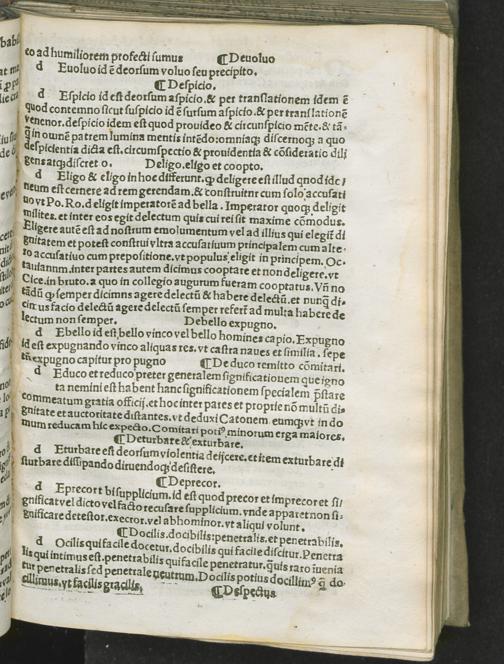 eo ad humiliorem profecti sumus ¶Deuoluo
d Euoluo id ē deorsum voluo seu precipito.
¶Despicio.
d Espicio id est deorsum aspicio.& per translationem idem ē
quod contemno sicut suspicio id ē sursum aspicio.& per translationē
venenor.despicio idem est quod prouideo & circunspicio mēte.& tā-
q̄ in ownē patrem lumina mentis intēdo:omniaq; discernoq; a quo
despicientia dicta est.circumspectio & prouidentia & cōsideratio dili
gens atq;discreto. Deligo.eligo et coopto.
d Eligo & eligo in hoc differunt.q; deligere est illud qnod idc;
neum est cernere ad rem gerendam.& construitnr cum solo accusati
uo vt Po.Ro.deligit imperatorē ad bella. Imperator quoq; deligit
milites.et inter eos egit delectum quis cui rei sit maxime cōmodus.
Eligere autē est ad nostrum emolumentum vel ad illius qui elegit di
gnitatem et potest construi vltra accusatiuum principalem cum alte-
ro accusatiuo cum prepositione.vt populus eligit in principem. Oc-
tauiannm.inter partes autem dicimus cooptare et non deligere.vt
Cice.in bruto.a quo in collegio augurum fueram cooptatus. Vn̄ no
tādū q; semper dicimns agere delectū & habere delectū.et nunq̄ di-
cimus facio delectū agere delectū semper referē ad multa habere de
lectum non semper. Debello expugno.
d Ebello id est bello vinco vel bello homines capio. Expugno
id est expugnando vinco aliquas res.vt castra naues et similia. sepe
tn̄ expugno capitur pro pugno ¶De duco remitto cōmitari.
d Educo et reduco preter generalem significationem que igno
ta nemini est habent hanc significationem specialem p̄stare
commeatum gratia officij.et hoc inter pares et proprie nō multū di-
gnitate et auctoritate distantes.vt deduxi Catonem eumq;vt in do
mum reducam hic expecto. Comitari poti⁹ minorum erga maiores.
¶Deturbare & exturbare.
d Eturbare est deorsum violentia deijcere.et item exturbare di
sturbare dissipando diruendoq; desistere.
¶Deprecor.
d Eprecort bi supplicium.id est quod precor et imprecor et si/
gnificat vel dicto vel facto recusare supplicium.vnde apparet non si-
gnificare detestor.execror.vel abhominor.vt aliqui volunt.
¶Docilis.docibilis:penetralis.et penetrabilis.
d Ocilis qui facile docetur,docibilis qui facile discitur. Penetra
lis qui intimus est.penetrabilis qui facile penetratur.quis raro inuenia
tur penetralis sed penetrale neutrum.Docilis potius docillim⁹ q̄ do
cillimus,vt facilis gracilis, ¶Despectus